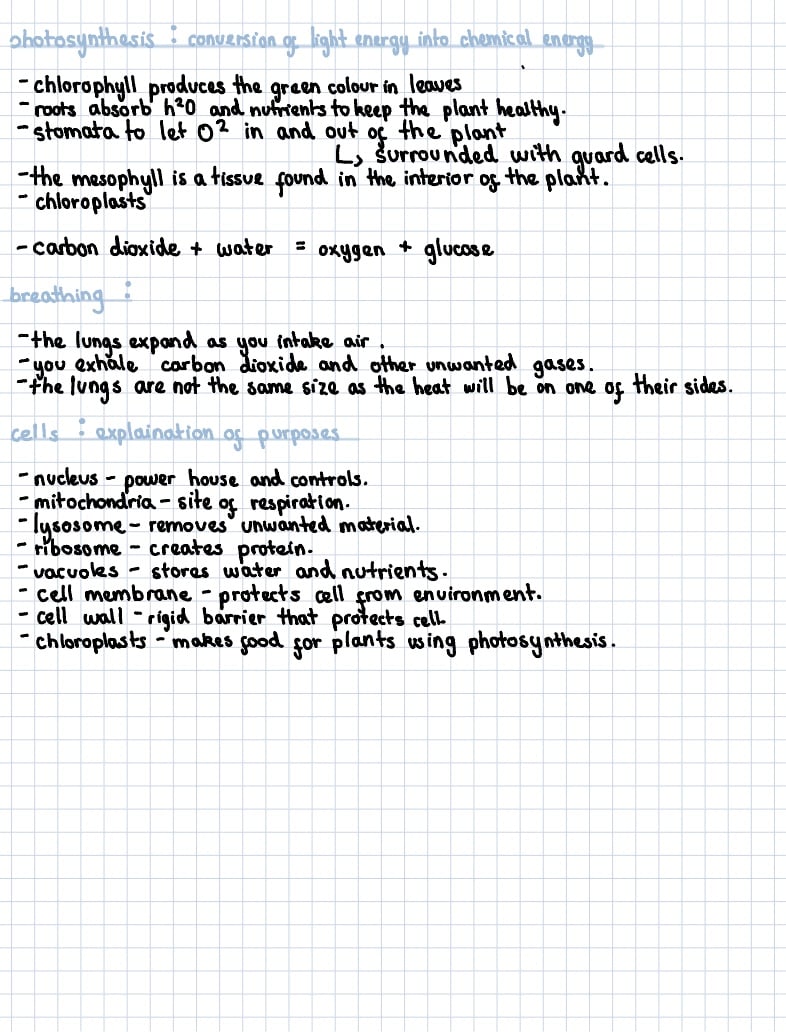 photosynthesis : conversion of light energy into chemical energy
- chlorophyll produces the green colour in leaves
- roots absorb h²O and nutrients to keep the plant healthy.
- stomata to let O² in and out of the plant
↳ surrounded with guard cells.
- the mesophyll is a tissue found in the interior of the plant.
- chloroplasts
- carbon dioxide + water = oxygen + glucose
breathing :
- the lungs expand as you intake air.
- you exhale carbon dioxide and other unwanted gases.
- the lungs are not the same size as the heat will be on one of their sides.
cells : explaination of purposes
- nucleus - power house and controls.
- mitochondria - site of respiration.
- lysosome - removes unwanted material.
- ribosome - creates protein.
- vacuoles - stores water and nutrients.
- cell membrane - protects cell from environment.
- cell wall - rigid barrier that protects cell.
- chloroplasts - makes food for plants using photosynthesis.